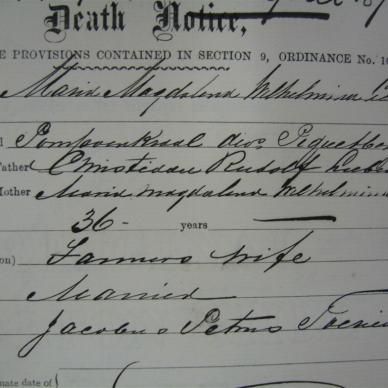 Death Notice,
E PROVISIONS CONTAINED IN SECTION 9, ORDINANCE No. 10
Maria Magdalena Wilhelmina
Pompoenkraal div. Piquetber
Father Christiaan Rudolf
Mother Maria Magdalena Wilhelmina
36 - years
on) Farmers wife
Married
Jacobus Petrus
uate date of